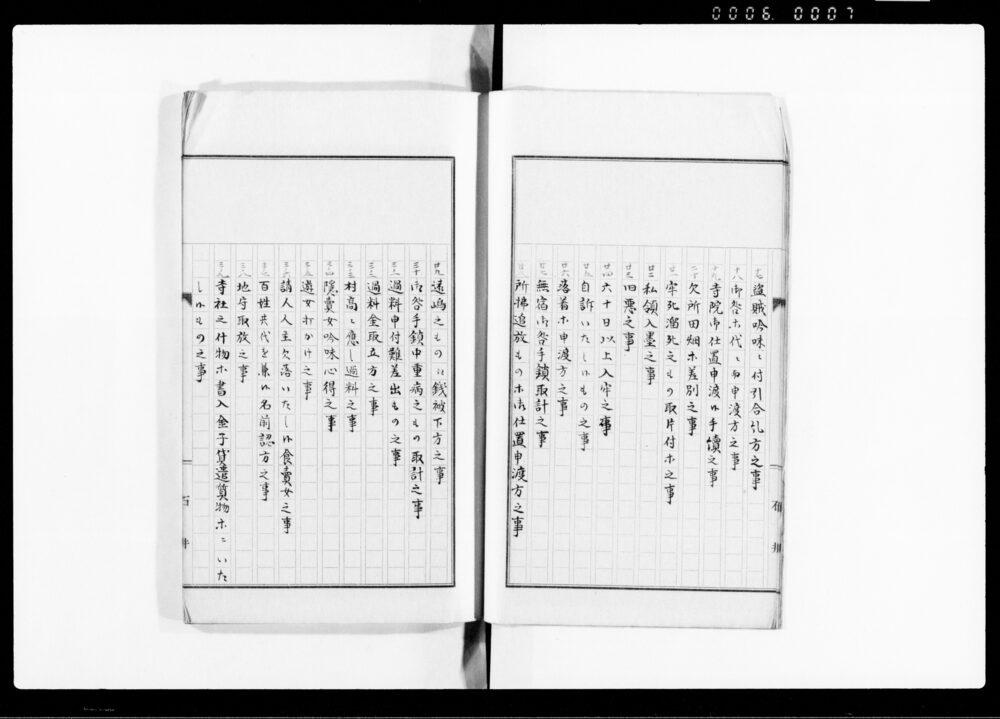 0006. 0007
十七 盗賊吟味ニ付引合糺方之事
十八 御咎ホ代ニ而申渡方之事
十九 寺院御仕置申渡候手續之事
二十 欠所田畑ホ差別之事
廿一 牢死溜死之もの取片付ホ之事
廿二 私領入墨之事
廿三 旧悪之事
廿四 六十日以上入牢之事
廿五 自訴いたし候もの之事
廿六 落着ホ申渡方之事
廿七 無宿御咎手鎖取計之事
廿八 所拂追放ものホ御仕置申渡方之事
廿九 遠嶋之もの江銭被下方之事
三十 御咎手鎖中重病之もの取計之事
三十一 過料申付難差出もの之事
三十二 過料金取立方之事
三十三 村高ニ應し過料之事
三十四 隠賣女吟味心得之事
三十五 遊女打かけ之事
三十六 請人人主欠落いたし候食賣女之事
三十七 百姓共代を兼候名前認方之事
三十八 地守取放之事
三十九 寺社之什物ホ書入金子貸遣質物ホニいた
し候もの之事